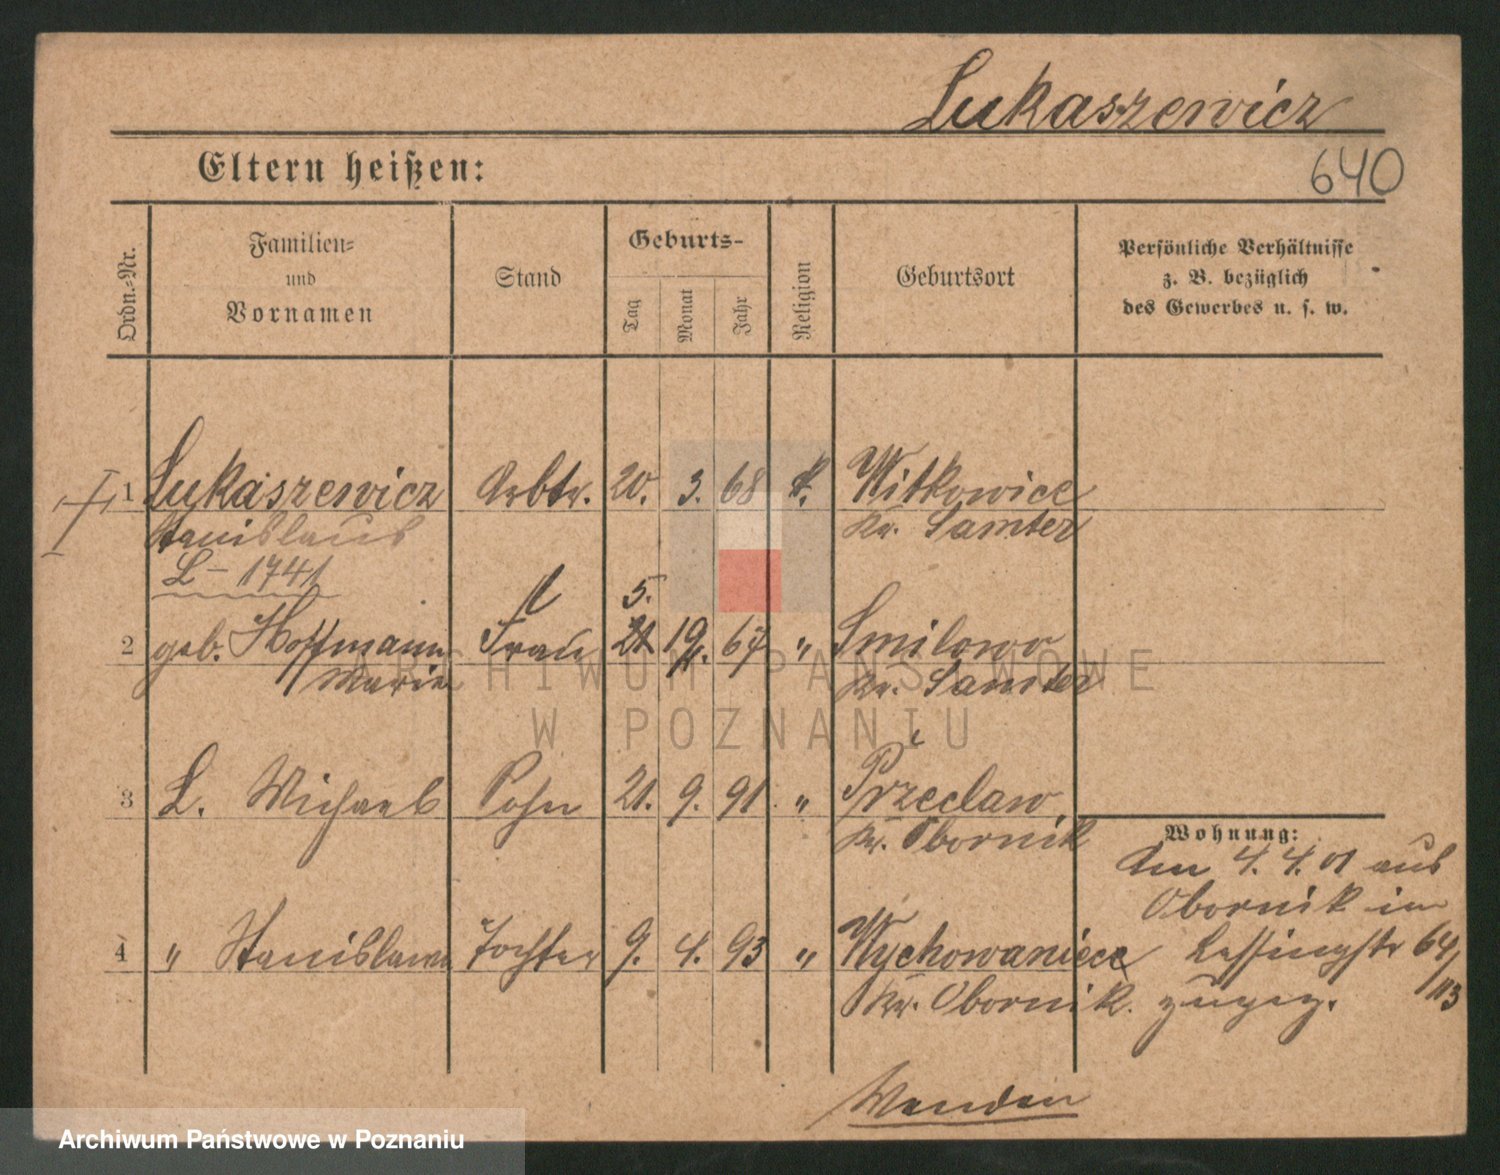 Lukaszewicz
640
Eltern heißen:
Ordn.-Nr.
Familien-
und
Vornamen
Stand
Geburts-
Tag
Monat
Jahr
Religion
Geburtsort
Persönliche Verhältnisse
z. B. bezüglich
des Gewerbes u. s. w.
1 Lukaszewicz Arbtr. 20. 3. 68 k. Witkowice
Stanislaus Kr. Samter
L - 1741
5.
2 geb. Hoffmann Frau 21 67 " Smilowo
Marie Kr. Samter
3 L. Michael Sohn 21. 9. 91. " Przeclaw
Kr. Obornik
Wohnung:
Am 4. 4. 01 aus
Obornik in
4 " Stanislawa Tochter 9. 4. 93 " Wychowaniec Lessingstr 64/113
Kr. Obornik. zugez.
Wenden
ARCHIWUM PAŃSTWOWE
W POZNANIU
Archiwum Państwowe w Poznaniu